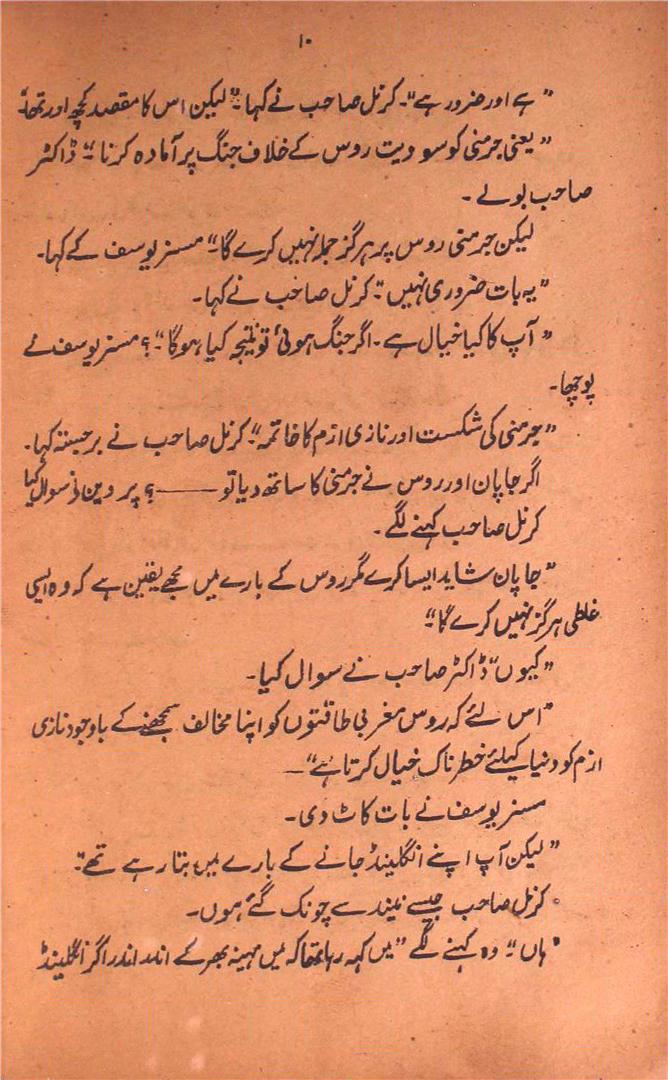 ۱۰
"ہے اور ضرور ہے"۔ کرنل صاحب نے کہا۔" لیکن اس کا مقصد کچھ اور تھا۔"
"یعنی جرمنی کو سوویت روس کے خلاف جنگ پر آمادہ کرنا"۔ ڈاکٹر
صاحب بولے۔
لیکن جرمنی روس پر ہرگز حملہ نہیں کرے گا"۔ مسز یوسف کے کہا۔
"یہ بات ضروری نہیں"۔ کرنل صاحب نے کہا۔
"آپ کا کیا خیال ہے۔ اگر جنگ ہوئی تو نتیجہ کیا ہوگا"۔؟ مسز یوسف نے
پوچھا۔
"جرمنی کی شکست اور نازی ازم کا خاتمہ"۔ کرنل صاحب نے برجستہ کہا۔
اگر جاپان اور روس نے جرمنی کا ساتھ دیا تو ——— ؟ پروین نے سوال کیا
کرنل صاحب کہنے لگے۔
"جاپان شاید ایسا کرے مگر روس کے بارے میں مجھے یقین ہے کہ وہ ایسی
غلطی ہرگز نہیں کرے گا"۔
"کیوں" ڈاکٹر صاحب نے سوال کیا۔
"اس لئے کہ روس مغربی طاقتوں کو اپنا مخالف سمجھنے کے باوجود نازی
ازم کو دنیا کیلئے خطرناک خیال کرتا ہے"—
مسز یوسف نے بات کاٹ دی۔
"لیکن آپ اپنے انگلینڈ جانے کے بارے میں بتا رہے تھے"۔
کرنل صاحب جیسے نیند سے چونک گئے ہوں۔
"ہاں"۔ وہ کہنے لگے "میں کہہ رہا تھا کہ میں مہینہ بھر کے اندر اندر اگر انگلینڈ